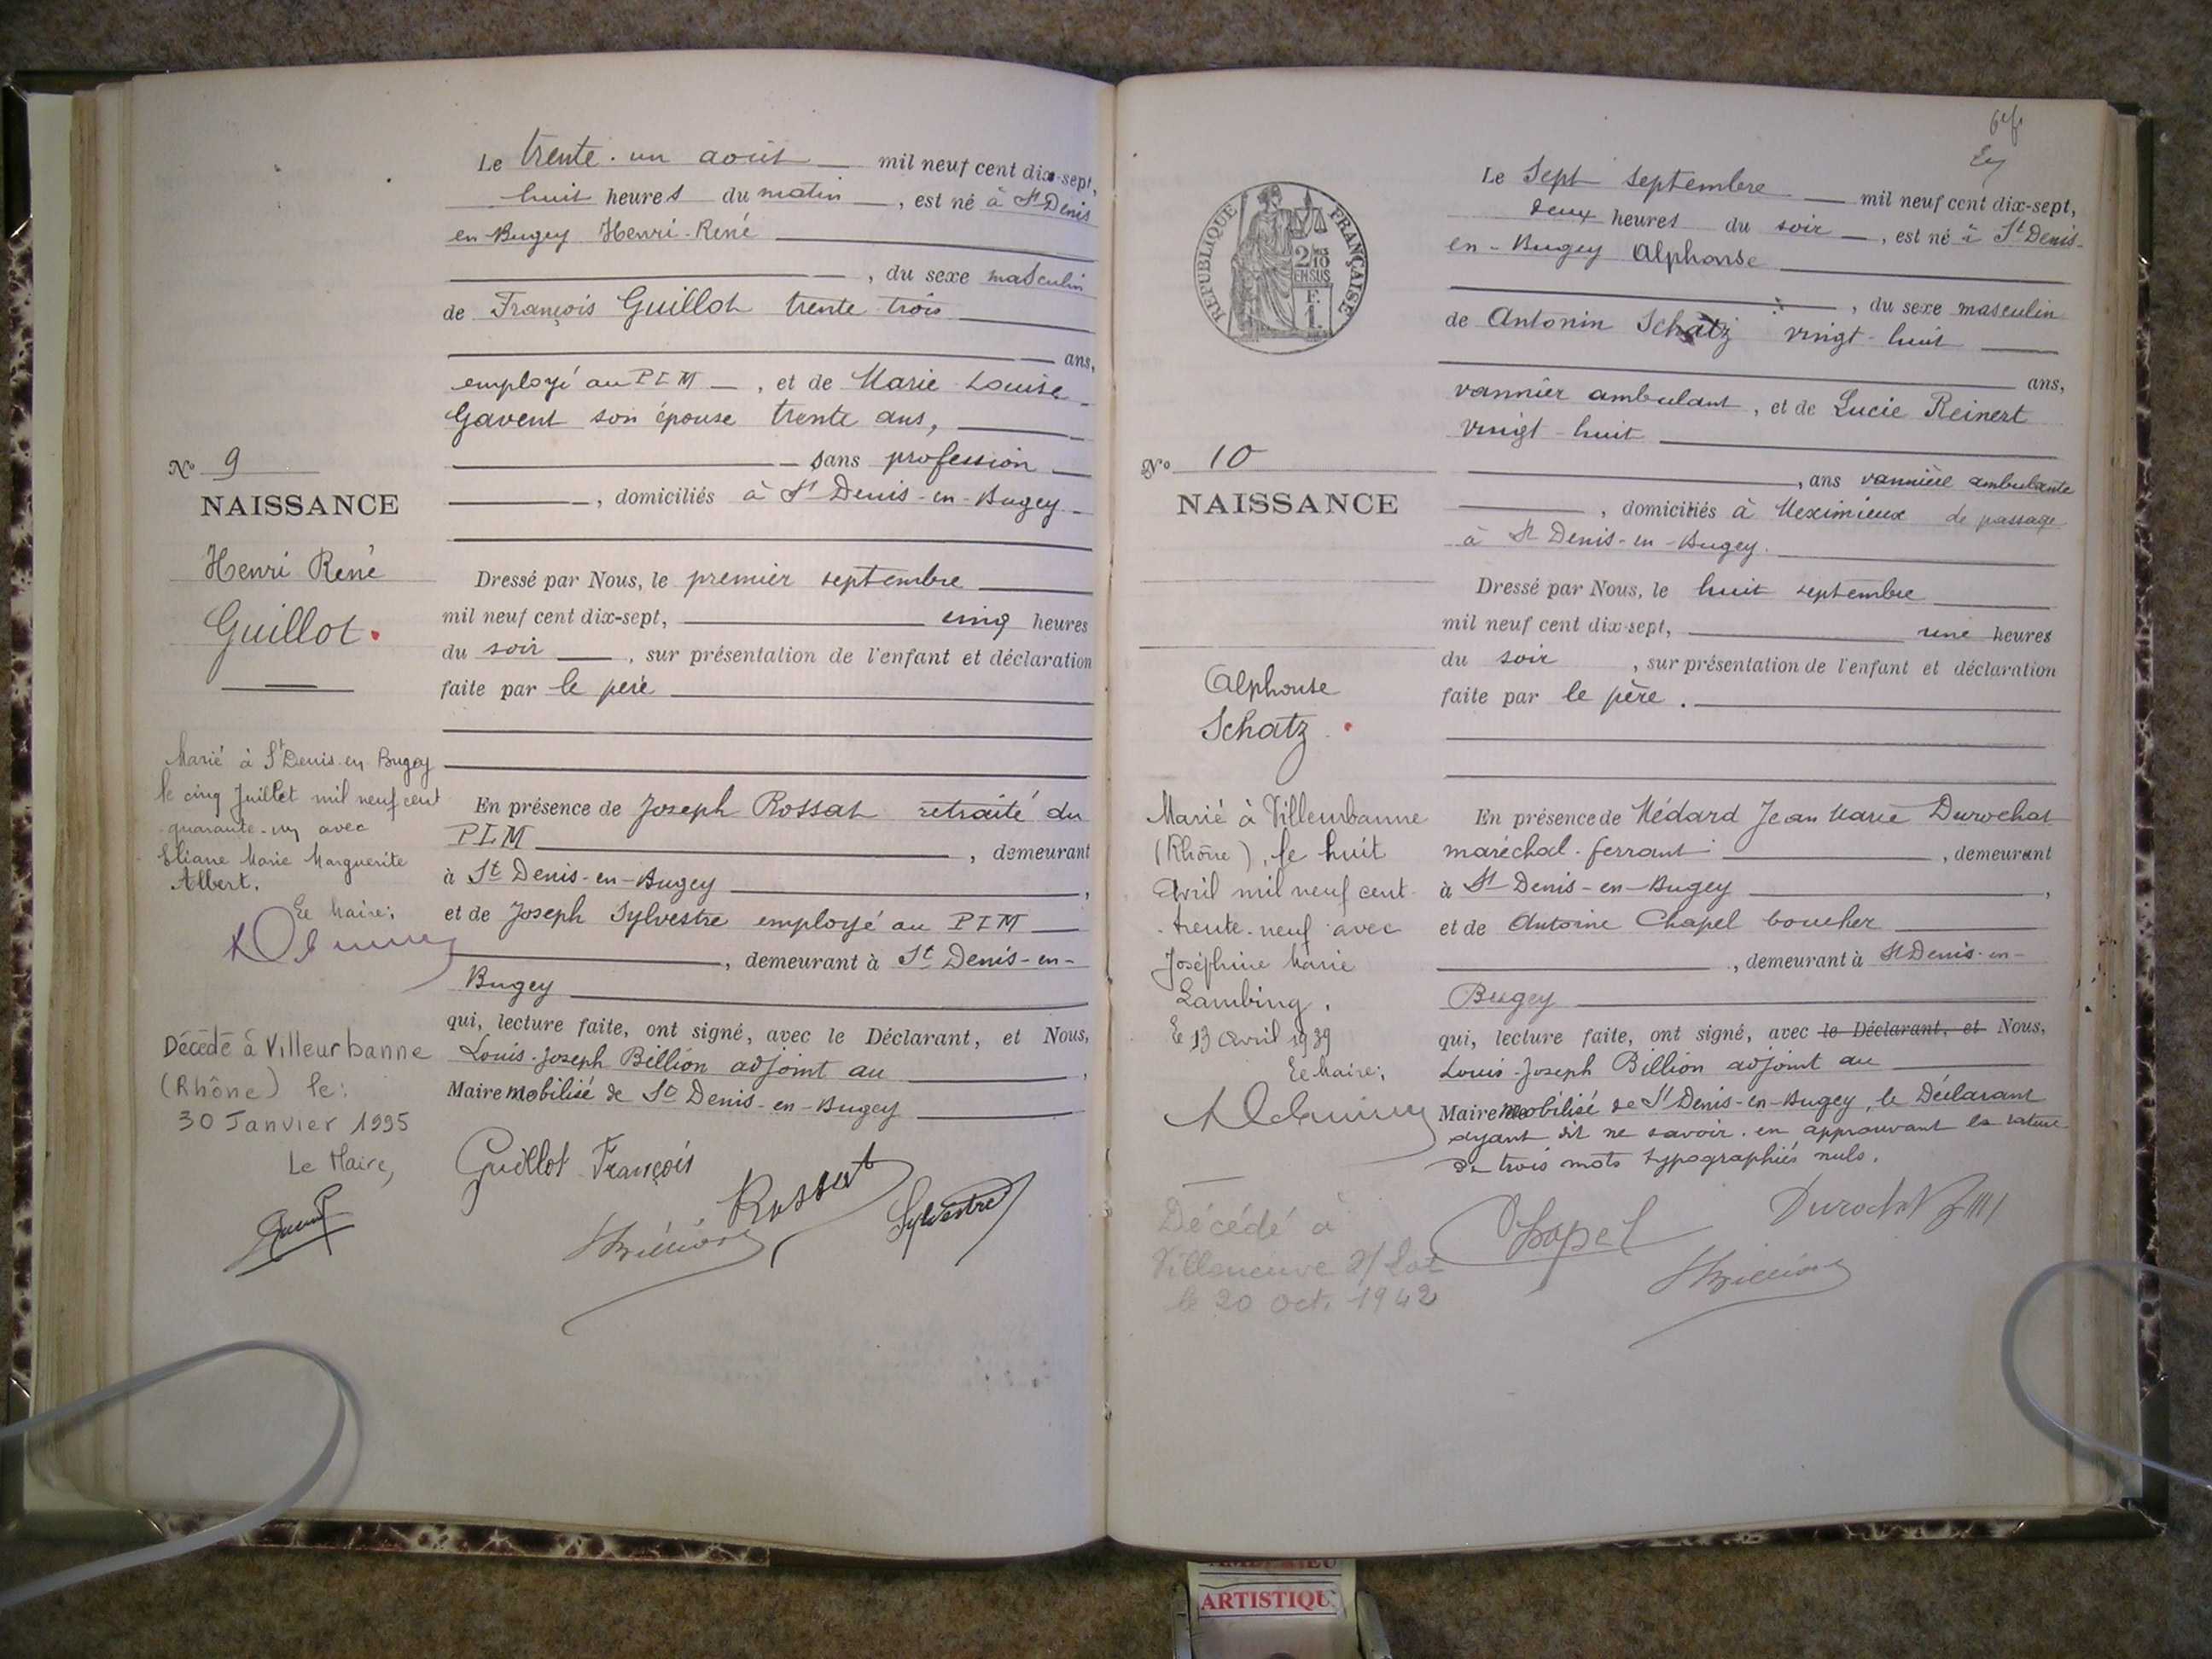 Le trente-un août mil neuf cent dix-sept,
huit heures du matin, est né à St Denis
en-Bugey Henri-René
, du sexe masculin
de François Guillot trente trois
ans,
employé au PLM, et de Marie Louise
Gavent son épouse trente ans,
sans profession
, domiciliés à St Denis-en-Bugey
No 9
NAISSANCE
Henri René
Guillot
Dressé par Nous, le premier septembre
mil neuf cent dix-sept, cinq heures
du soir, sur présentation de l'enfant et déclaration
faite par le père
Marié à St Denis-en Bugey
le cinq Juillet mil neuf cent
quarante-un avec
Eliane Marie Marguerite
Albert.
Le Maire;
En présence de Joseph Rossat retraité du
PLM, demeurant
à St Denis-en-Bugey,
et de Joseph Sylvestre employé au PLM
, demeurant à St Denis-en-
Bugey
qui, lecture faite, ont signé, avec le Déclarant, et Nous,
Louis-Joseph Billion adjoint au,
Maire mobilisé de St Denis-en-Bugey
Décédé à Villeurbanne
(Rhône) le:
30 Janvier 1995
Le Maire,
Guillot François
Rossat
Sylvestre
JBillion
Le Sept septembre mil neuf cent dix-sept,
deux heures du soir, est né à St Denis-
en-Bugey Alphonse
, du sexe masculin
de Antonin Schatz vingt-huit
ans,
vannier ambulant, et de Lucie Reinert
vingt-huit
, ans vannière ambulante
, domiciliés à Meximieux de passage
à St Denis-en-Bugey.
REPUBLIQUE FRANÇAISE
No 10
NAISSANCE
Alphonse
Schatz
Dressé par Nous, le huit septembre
mil neuf cent dix-sept, une heures
du soir, sur présentation de l'enfant et déclaration
faite par le père.
Marié à Villeurbanne
(Rhône), le huit
Avril mil neuf cent
trente-neuf avec
Joséphine Marie
Lambing.
Le 13 Avril 1939
Le Maire;
En présence de Médard Jean Marie Durochat
maréchal-ferrant, demeurant
à St Denis-en-Bugey,
et de Antoine Chapel boucher
, demeurant à St Denis-en-
Bugey
qui, lecture faite, ont signé, avec le Déclarant, et Nous,
Louis-Joseph Billion adjoint au
Maire mobilisé de St Denis-en-Bugey, le Déclarant
ayant dit ne savoir. en approuvant la rature
de trois mots typographiés nuls.
Décédé à
Villeneuve s/ Lot
le 20 Oct. 1942
Chapel
Durochat
JBillion
ARTISTIQU